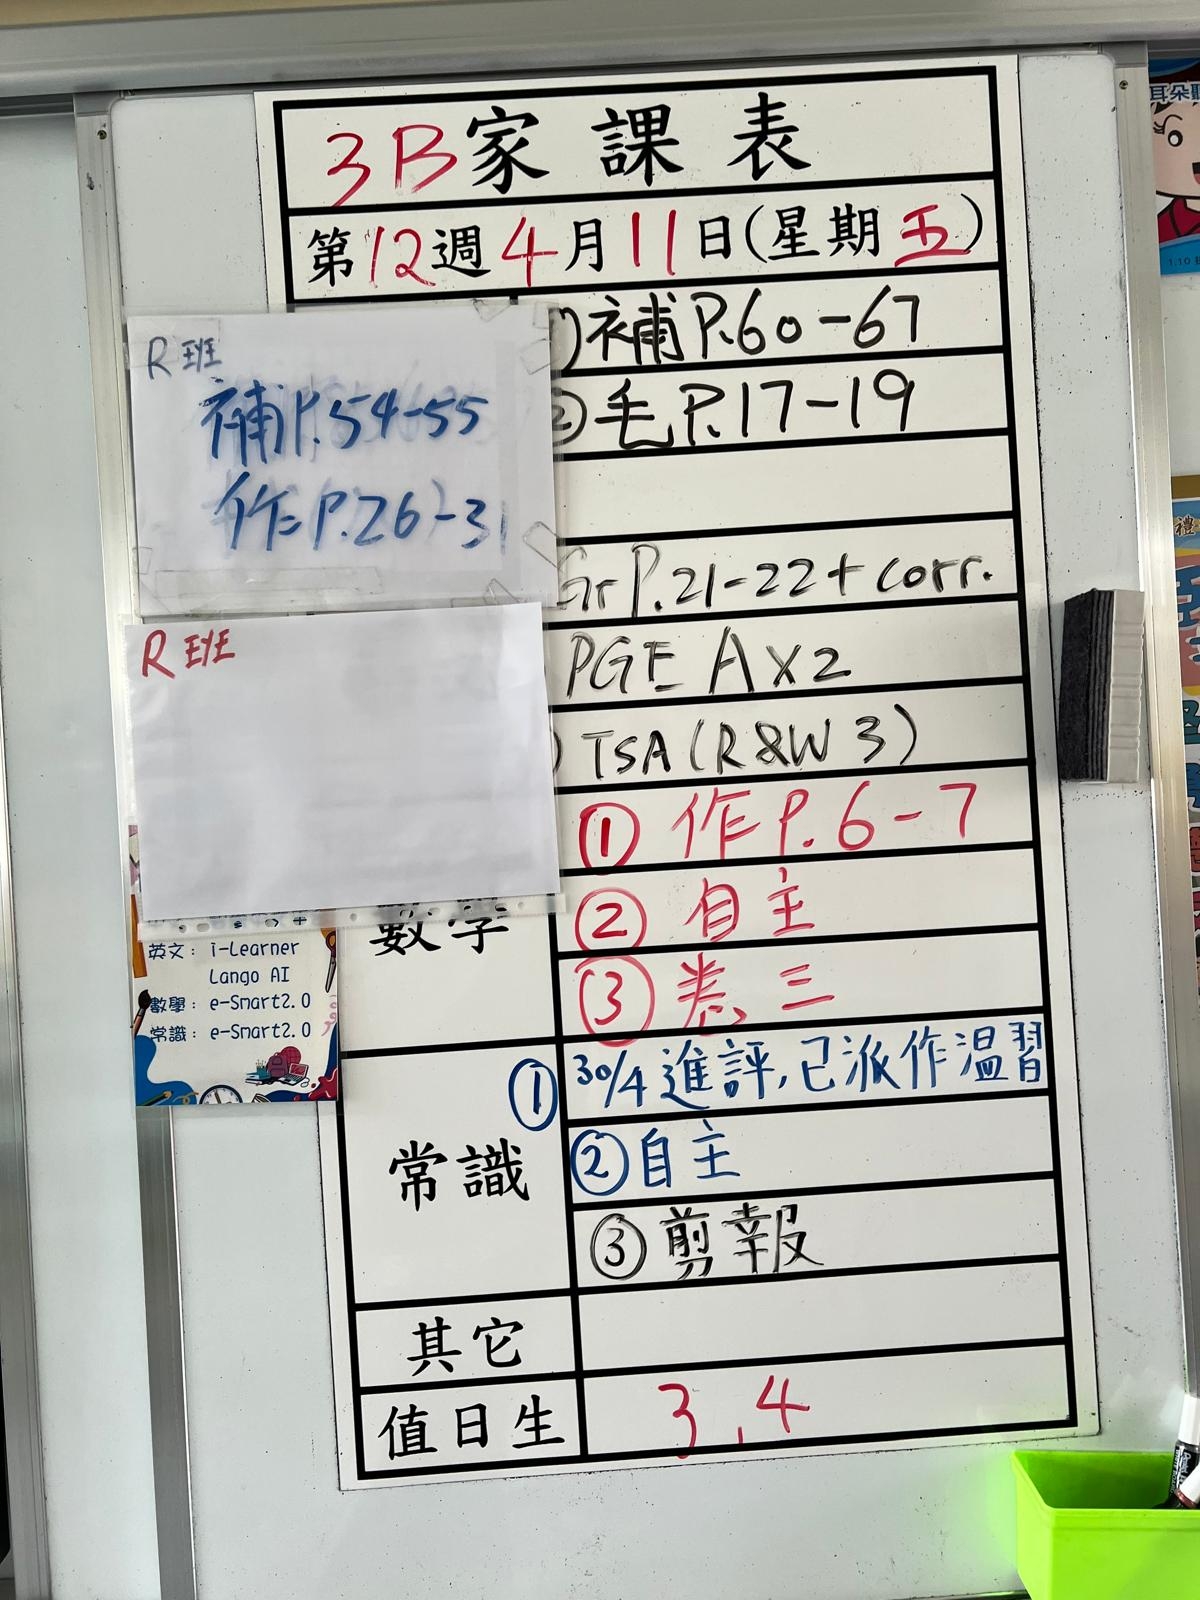 3B家課表
第12週4月11日(星期五)
R班
補P.54-55
作P.26-31
R班
補P.60-67
毛P.17-19
Gr P.21-22+corr.
PGE A x2
TSA(R&W 3)
數學
① 作P.6-7
② 自主
③ 卷三
英文：i-Learner
Lango AI
數學：e-Smart2.0
常識：e-Smart2.0
常識
① 30/4進評,已派作溫習
② 自主
③ 剪報
其它
值日生
3,4
耳朵
1.10
禮